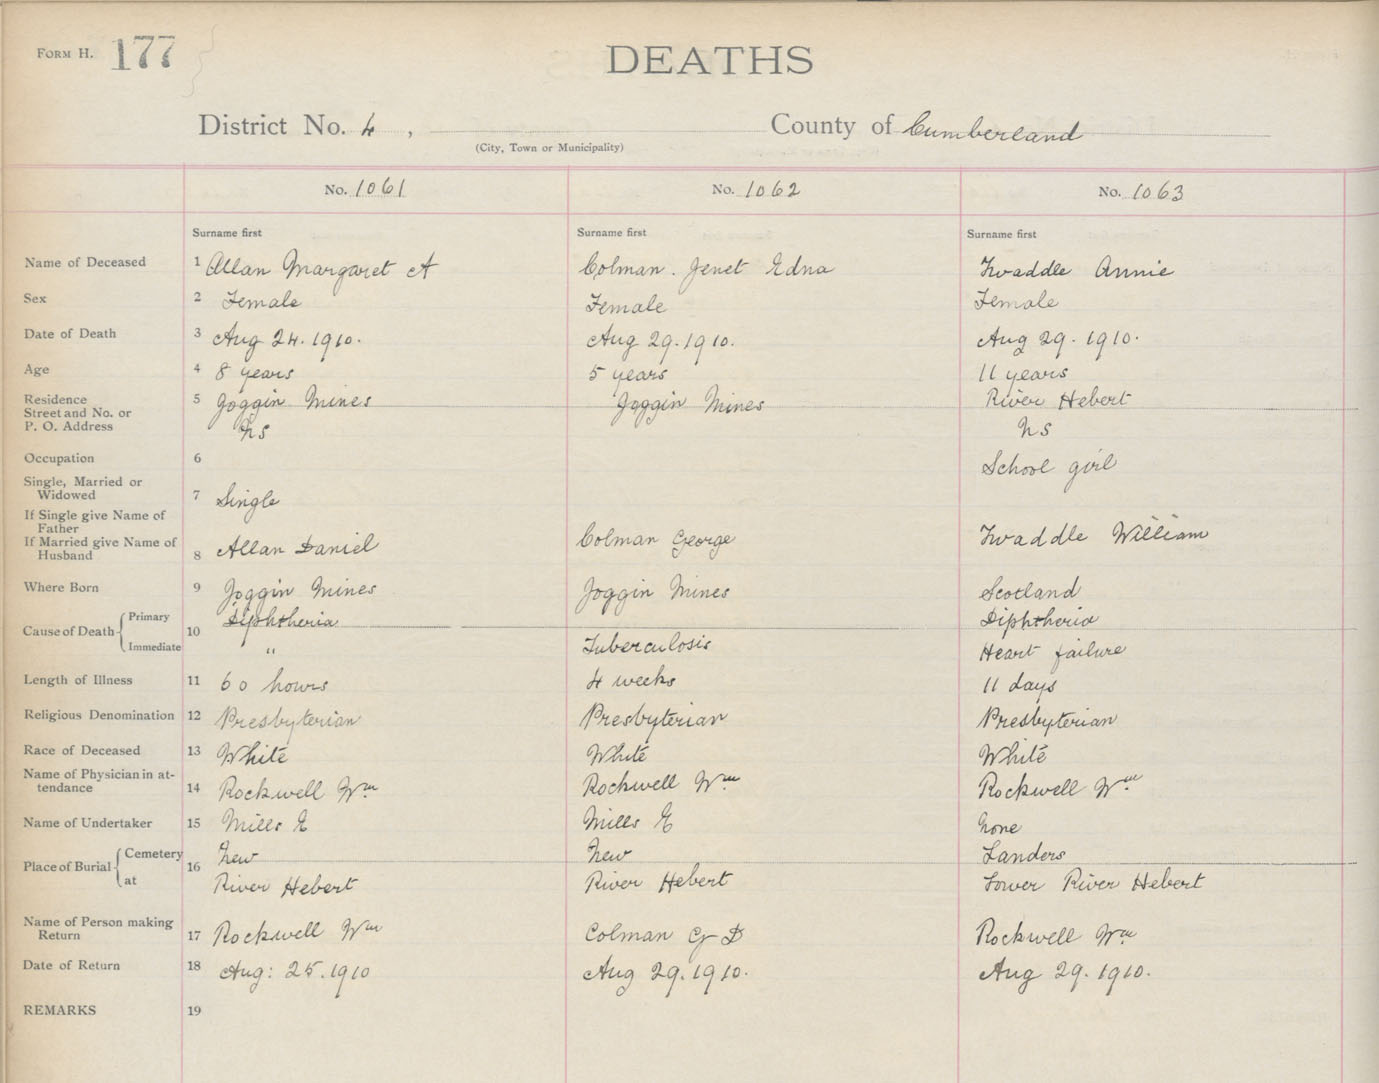 FORM H. 177
DEATHS
District No. 4 , County of Cumberland
(City, Town or Municipality)
No. 1061 No. 1062 No. 1063
Surname first Surname first Surname first
Name of Deceased 1 Allan Margaret A Colman. Jenet Edna Twaddle Annie
Sex 2 Female Female Female
Date of Death 3 Aug 24. 1910. Aug 29. 1910. Aug 29. 1910.
Age 4 8 years 5 years 11 years
Residence 5 Joggin Mines Joggin Mines River Hebert
Street and No. or
P. O. Address NS NS
Occupation 6 School girl
Single, Married or
Widowed 7 Single
If Single give Name of
Father
If Married give Name of
Husband 8 Allan Daniel Colman George Twaddle William
Where Born 9 Joggin Mines Joggin Mines Scotland
Cause of Death Primary 10 Diphtheria Diphtheria
Immediate " Tuberculosis Heart failure
Length of Illness 11 60 hours 4 weeks 11 days
Religious Denomination 12 Presbyterian Presbyterian Presbyterian
Race of Deceased 13 White White White
Name of Physician in at-
tendance 14 Rockwell Wm Rockwell Wm Rockwell Wm
Name of Undertaker 15 Mills E Mills E None
Place of Burial Cemetery 16 New New Landers
at River Hebert River Hebert Lower River Hebert
Name of Person making
Return 17 Rockwell Wm Colman G D Rockwell Wm
Date of Return 18 Aug: 25. 1910 Aug 29. 1910. Aug 29. 1910.
REMARKS 19